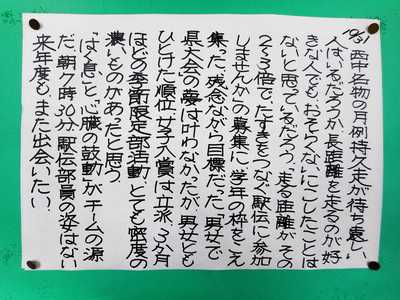 10/31
西中名物の月例持久走が待ち遠しい
人はいるだろうか。長距離を走るのが好
きな人でも、おそらくないにこしたことは
ないと思っているだろう。「走る距離がその
2~3倍で、たすきをつなぐ駅伝に参加
しませんか」の募集に、学年の枠をこえ
集った。残念ながら目標だった「男女で
県大会」の夢は叶わなかったが、男女とも
ひとけた順位、女子入賞は立派。3か月
ほどの季節限定部活動、とても密度の
濃いものがあったと思う。
「はく息」と「心臓の鼓動」がチームの源
だ。朝7時30分、駅伝部員の姿はない。
来年度も、また出会いたい。